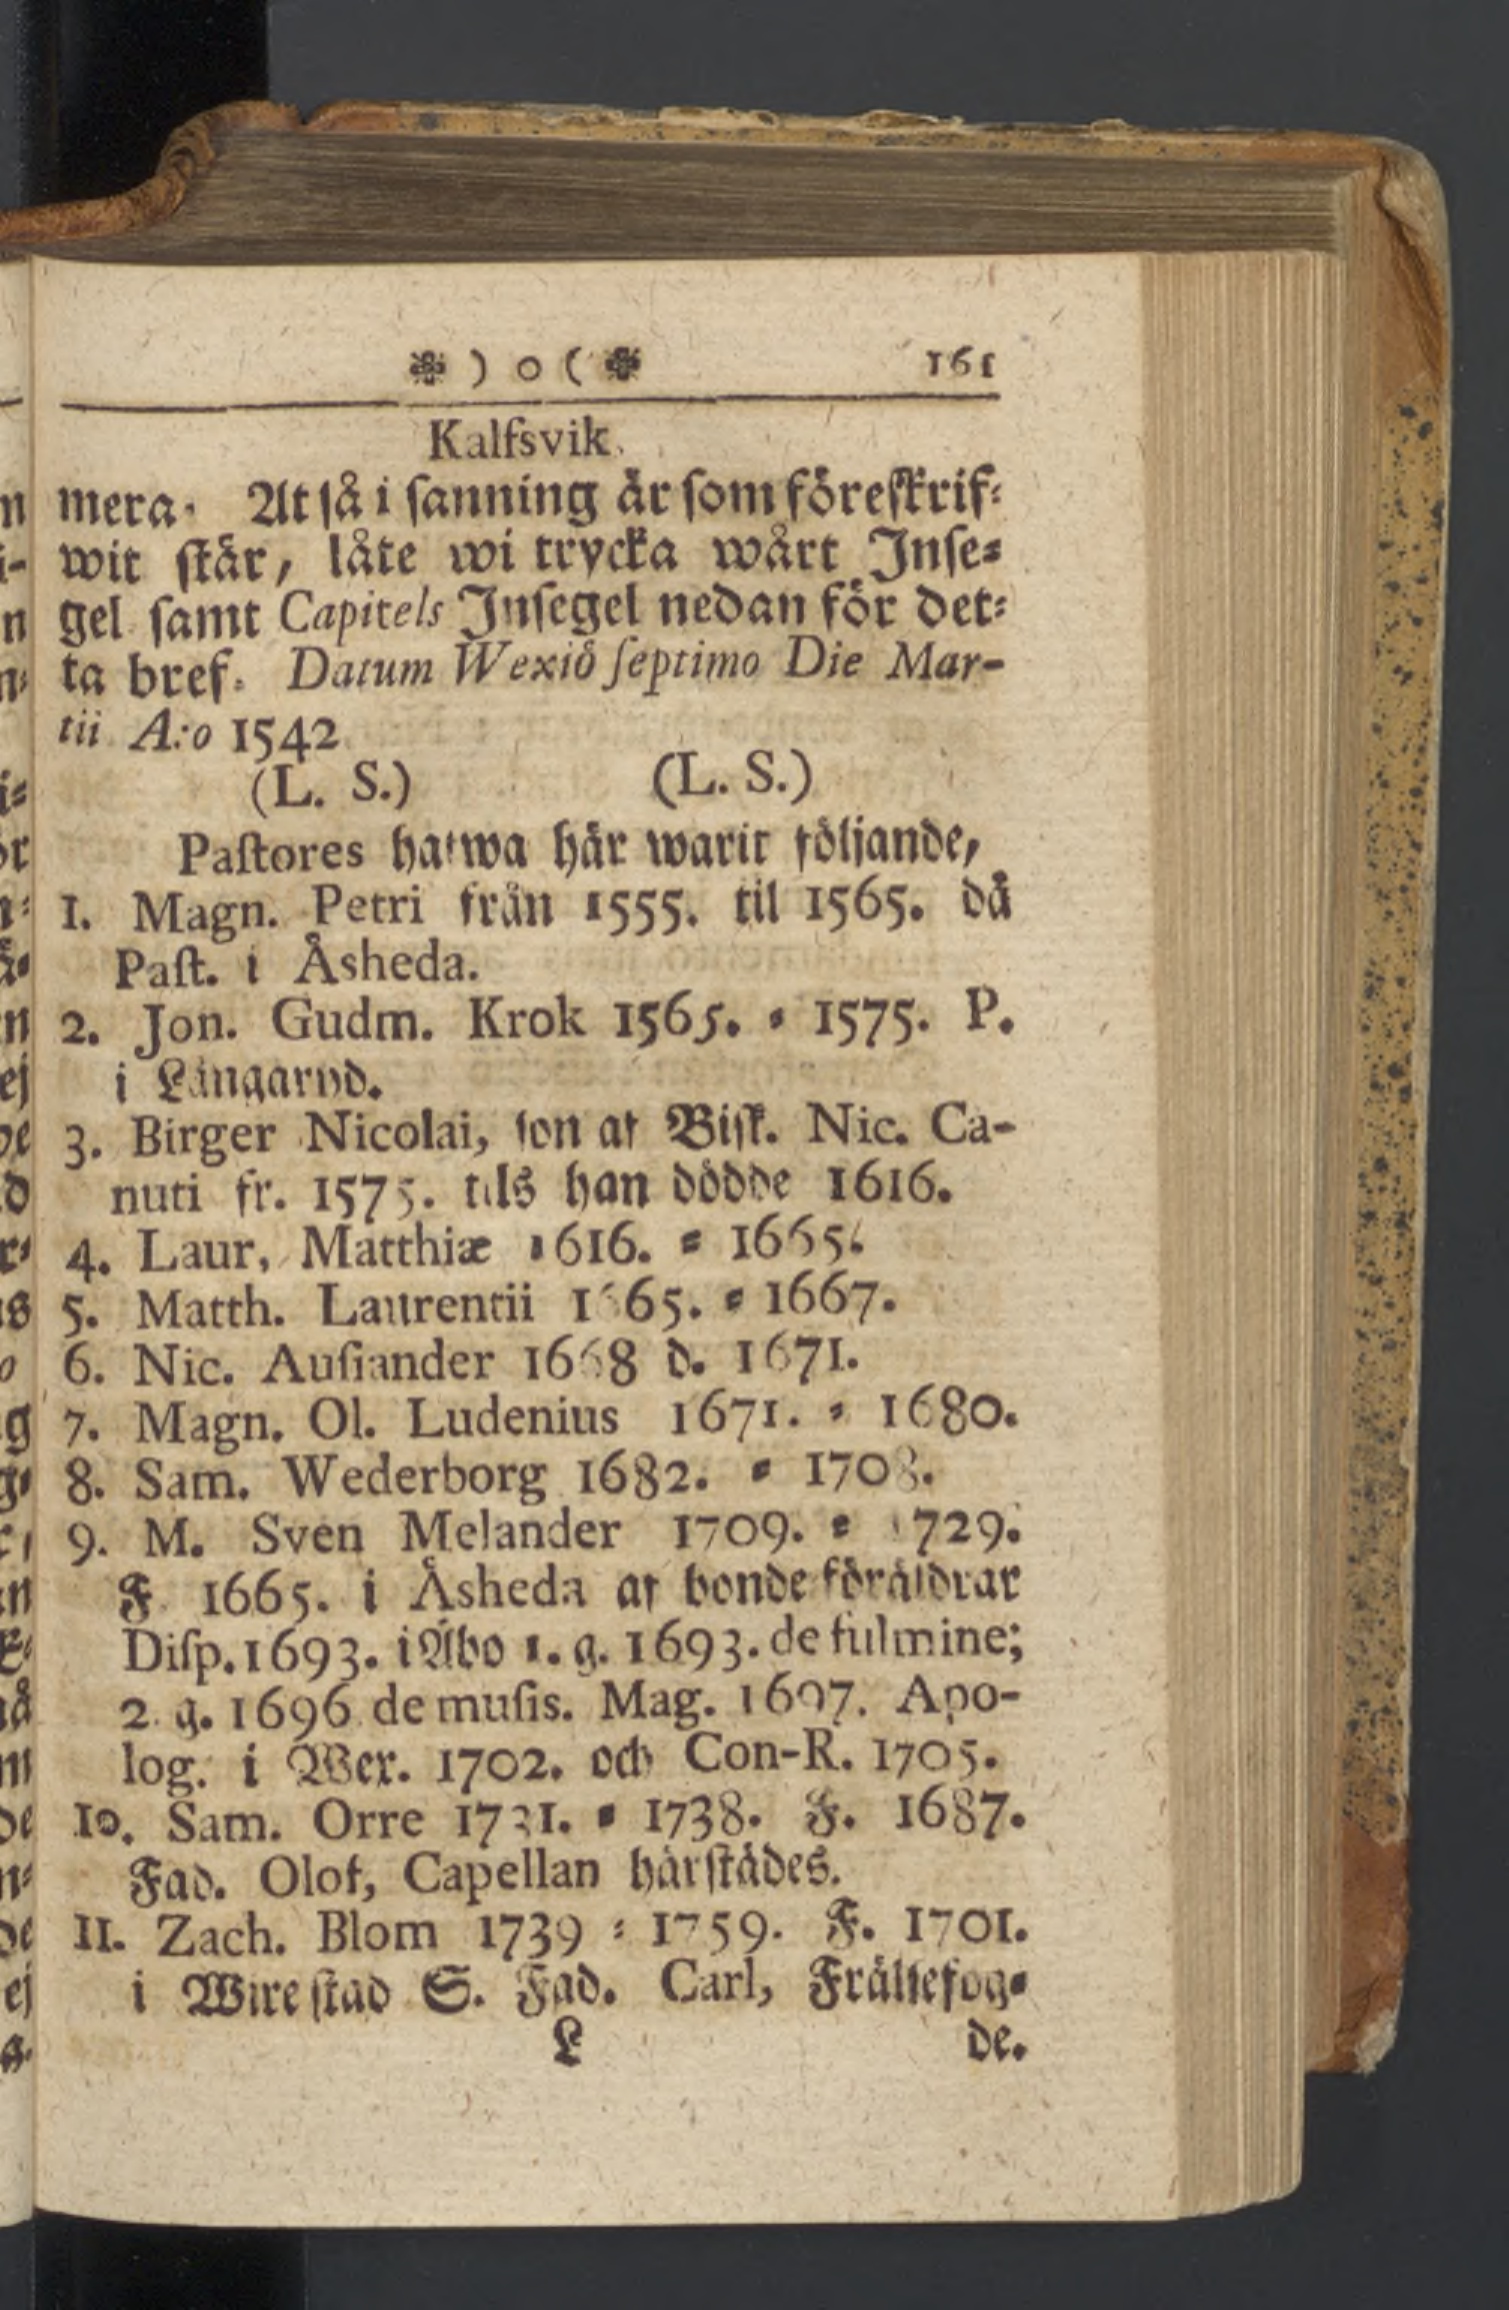 ❉ ) o ( ❉ 161
Kalfsvik.
mera. At så i sanning är som föreskrif-
wit står, låte wi trycka wårt Inse-
gel samt Capitels Insegel nedan för det-
ta bref. Datum Wexiö septimo Die Mar-
tii A:o 1542
(L. S.) (L. S.)
Pastores hafwa här warit följande,
1. Magn. Petri från 1555. til 1565. då
Past. i Åsheda.
2. Jon. Gudm. Krok 1565. - 1575. P.
i Långaryd.
3. Birger Nicolai, son af Bisk. Nic. Ca-
nuti fr. 1575. tils han dödde 1616.
4. Laur, Matthiæ 1616. - 1665.
5. Matth. Laurentii 1665. - 1667.
6. Nic. Ausiander 1668 d. 1671.
7. Magn. Ol. Ludenius 1671. - 1680.
8. Sam. Wederborg 1682. - 1708.
9. M. Sven Melander 1709. - 1729.
F 1665. i Åsheda af bonde föräldrar
Disp. 1693. i Åbo 1. g. 1693. de fulmine;
2. g. 1696 de musis. Mag. 1697. Apo-
log. i Wex. 1702. och Con-R. 1705.
10. Sam. Orre 1731. - 1738. F. 1687.
Fad. Olof, Capellan härstädes.
11. Zach. Blom 1739 - 1759. F. 1701.
i Wirestad S. Fad. Carl, Frälsefog-
L de.